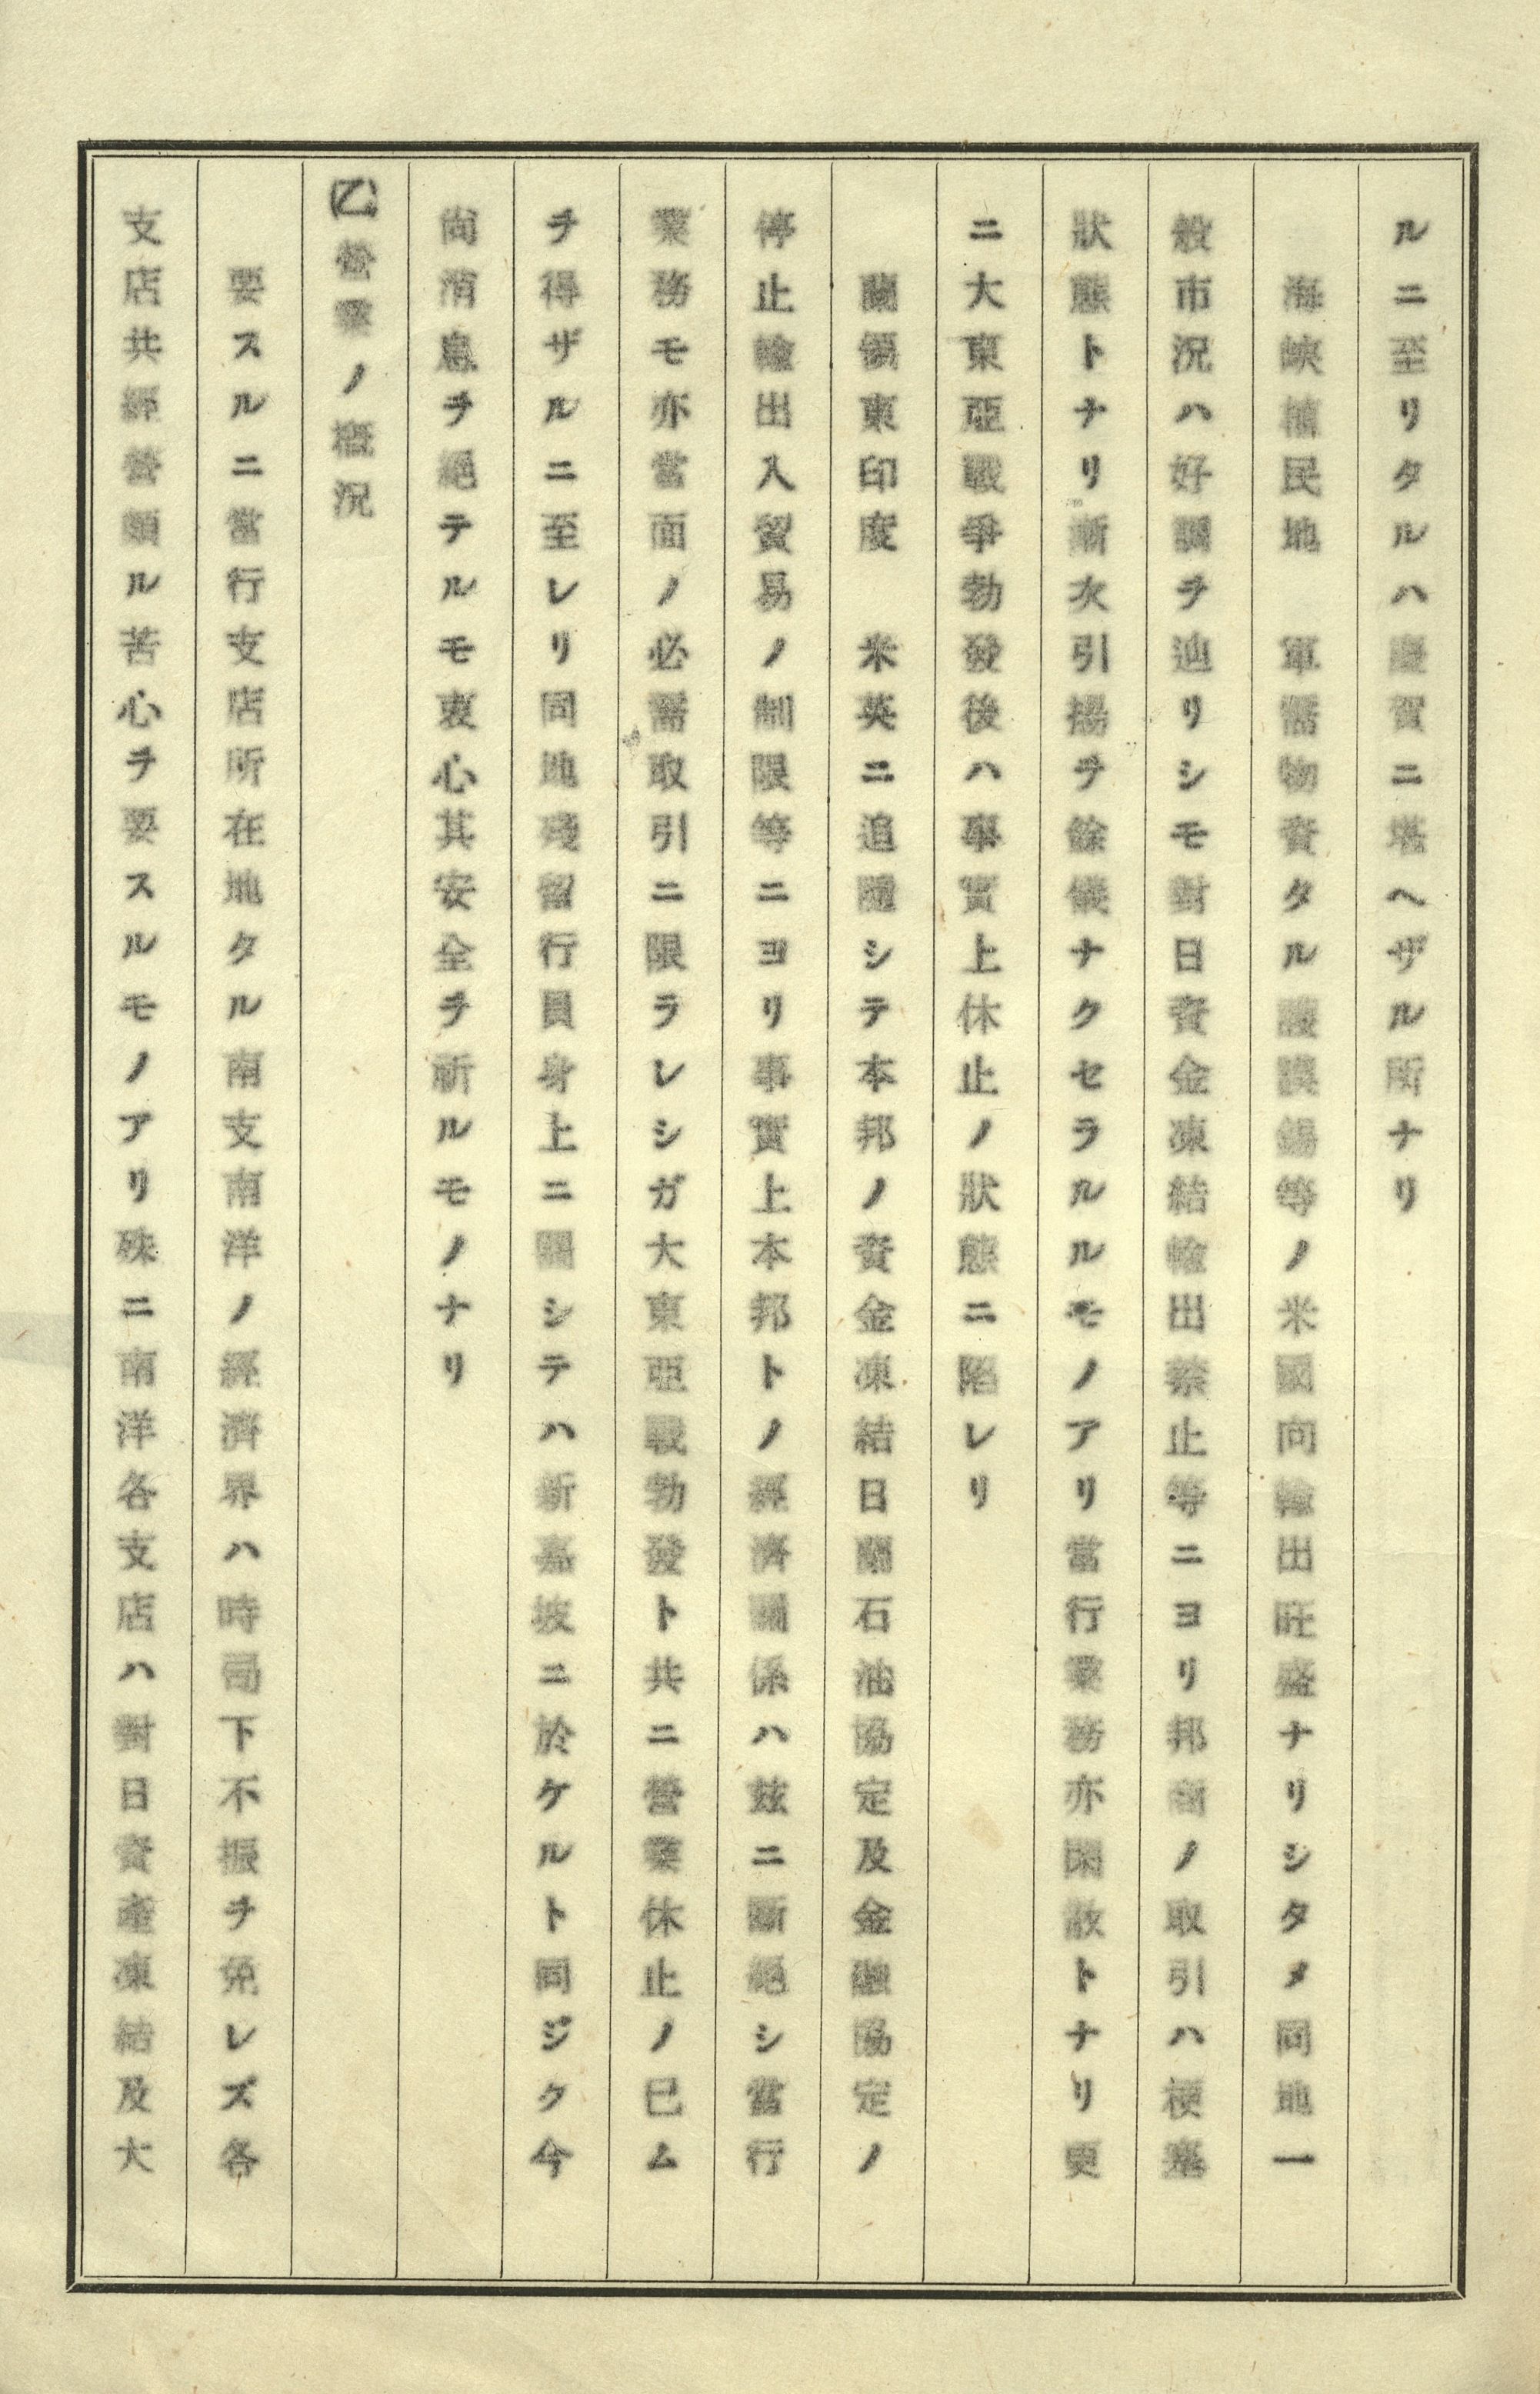 ルニ至リタルハ慶賀ニ堪ヘザル所ナリ
海峽植民地　軍需物資タル護謨錫等ノ米國向輸出旺盛ナリシタメ同地一
般市況ハ好調ヲ辿リシモ對日資金凍結輸出禁止等ニヨリ邦商ノ取引ハ梗塞
狀態トナリ漸次引揚ヲ餘儀ナクセラルルモノアリ當行業務亦閑散トナリ更
ニ大東亞戰爭勃發後ハ事實上休止ノ狀態ニ陷レリ
蘭領東印度　米英ニ追隨シテ本邦ノ資金凍結日蘭石油協定及金融協定ノ
停止輸出入貿易ノ制限等ニヨリ事實上本邦トノ經濟關係ハ玆ニ斷絕シ當行
業務モ亦當面ノ必需取引ニ限ラレシガ大東亞戰勃發ト共ニ營業休止ノ已ム
ヲ得ザルニ至レリ同地殘留行員身上ニ關シテハ新嘉坡ニ於ケルト同ジク今
尙消息ヲ絕テルモ衷心其安全ヲ祈ルモノナリ
(乙)營業ノ槪況
要スルニ當行支店所在地タル南支南洋ノ經濟界ハ時局下不振ヲ免レズ各
支店共經營頗ル苦心ヲ要スルモノアリ殊ニ南洋各支店ハ對日資產凍結及大